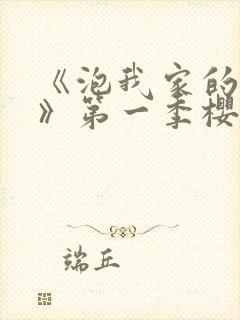 《泡我家的
》第一季樱
端丘